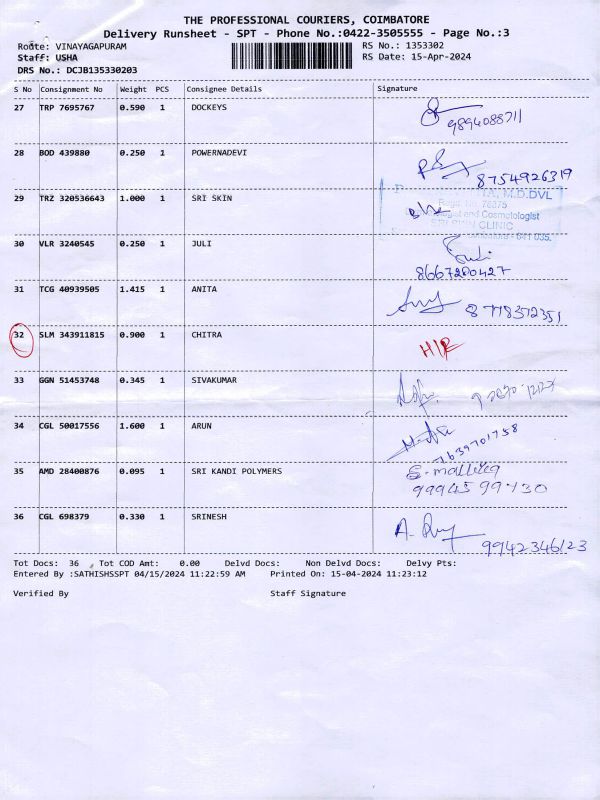 THE PROFESSIONAL COURIERS, COIMBATORE
Delivery Runsheet - SPT - Phone No.:0422-3505555 - Page No.:3
Route: VINAYAGAPURAM RS No.: 1353302
Staff: USHA RS Date: 15-Apr-2024
DRS No.: DCJB135330203
S No Consignment No Weight PCS Consignee Details Signature
27 TRP 7695767 0.590 1 DOCKEYS
9894088711
28 BOD 439880 0.250 1 POWERNADEVI
8754926319
29 TRZ 320536643 1.000 1 SRI SKIN
M.D.DVL
and Cosmetologist
CLINIC
641 035.
30 VLR 3240545 0.250 1 JULI
8667280427
31 TCG 40939505 1.415 1 ANITA
8778372351
32 SLM 343911815 0.900 1 CHITRA
33 GGN 51453748 0.345 1 SIVAKUMAR
34 CGL 50017556 1.600 1 ARUN
7639701758
35 AMD 28400876 0.095 1 SRI KANDI POLYMERS
99945 99730
36 CGL 698379 0.330 1 SRINESH
9942346123
Tot Docs: 36 Tot COD Amt: 0.00 Delvd Docs: Non Delvd Docs: Delvy Pts:
Entered By :SATHISHSSPT 04/15/2024 11:22:59 AM Printed On: 15-04-2024 11:23:12
Verified By Staff Signature